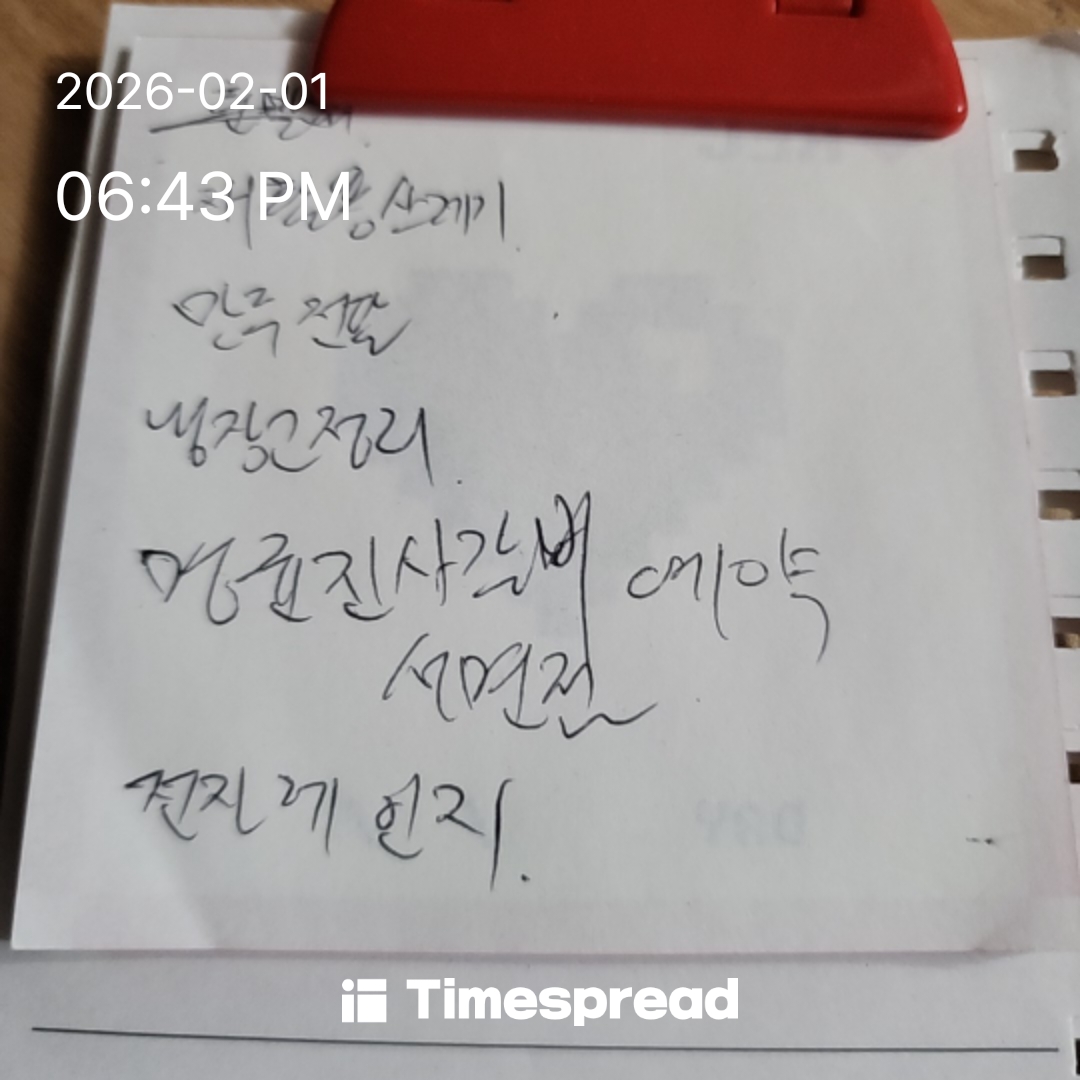 2026-02-01
06:43 PM
쓰레기.
만두 전골
냉장고정리.
명륜진사갈비 예약
서면점
전자레인지.
Timespread